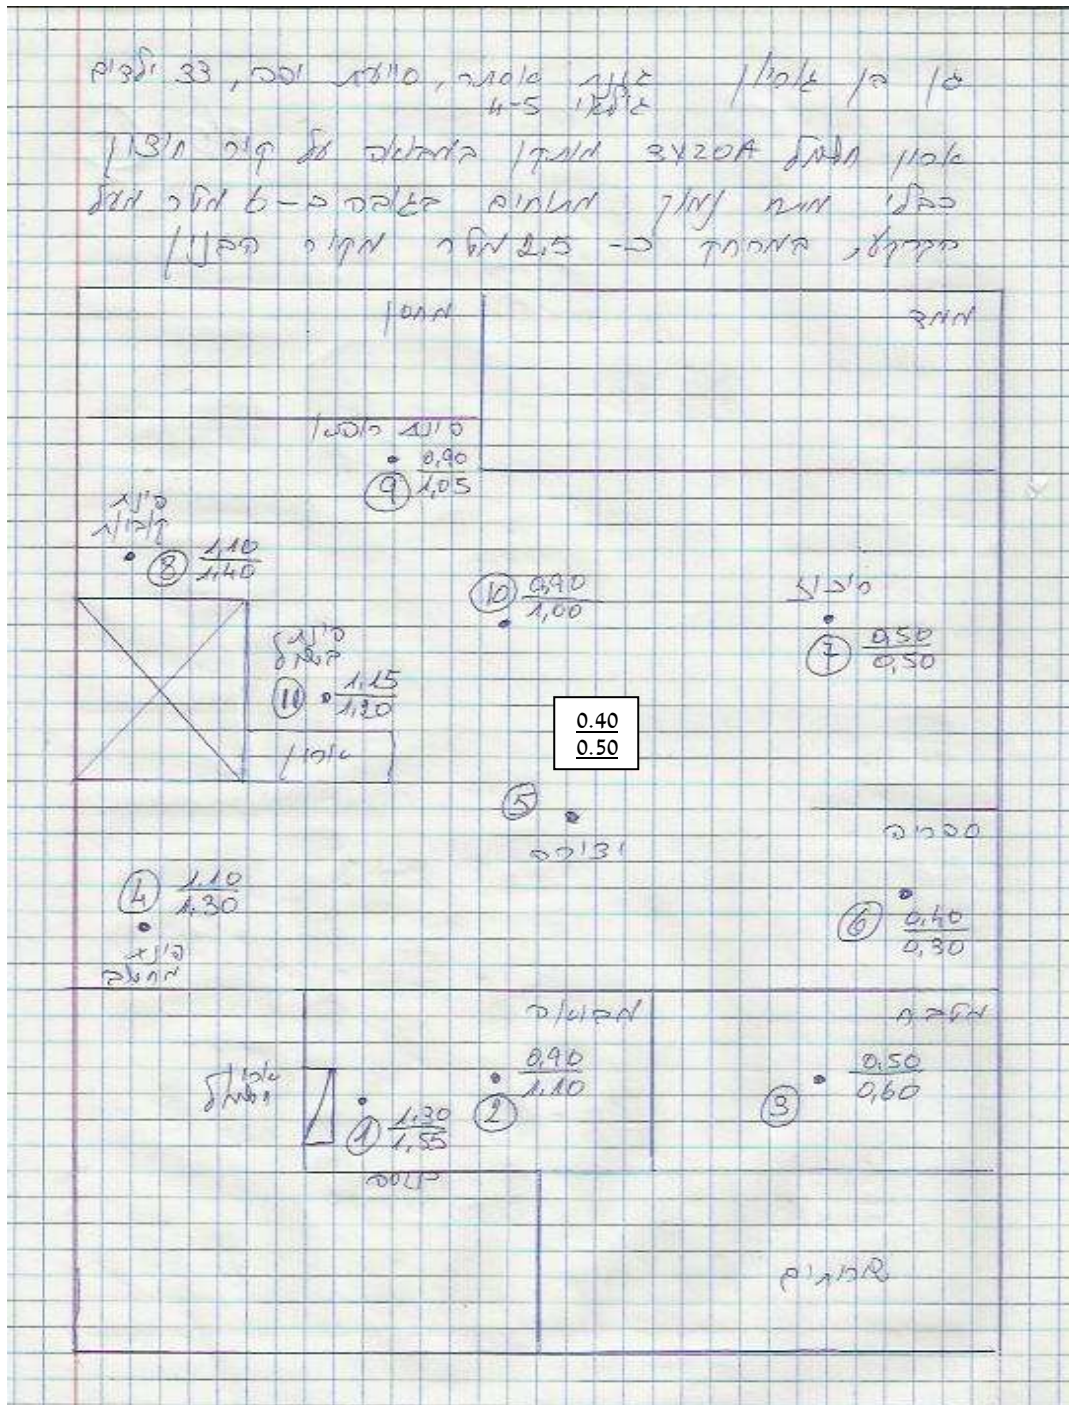 גן בן גוריון גננת אסתר, סייעת יפה, 33 ילדים
גילאי 4-5
ארון חשמל 3X20A מותקן במבואה על קיר חיצון
כבלי מתח נמוך מתוחים בגובה כ-6 מטר מעל
הקרקע, במרחק כ- 2.5 מטר מקיר הבניין
מחסן
ממד
פינת רופא
9 0,90
1,05
פינת
קוביות
8 1,10
1,40
10 0,90
1,00
ריכוז
7 0,50
0,50
פינת
חשמל
11 1,15
1,20
ארון
0.40
0.50
5
יצירה
ספריה
4 1.10
1.30
פינת
מחשב
6 0,40
0,30
מבואה
מטבח
ארון
חשמל
1 1,30
1,55
2 0,90
1,10
3 0,50
0,60
כניסה
שרותים